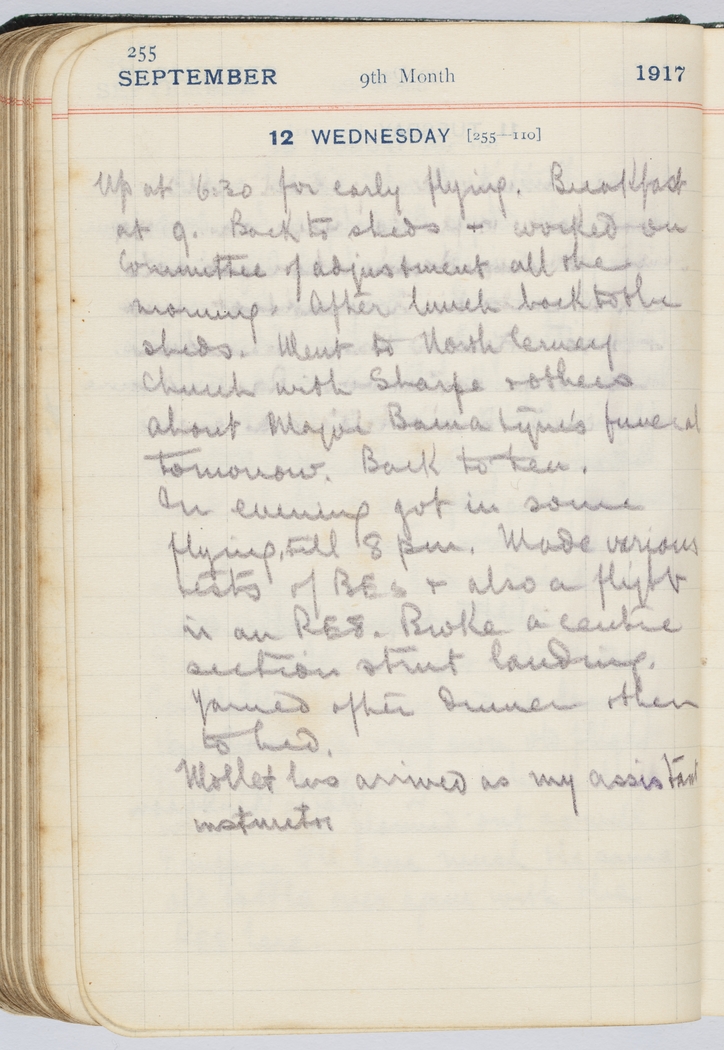 255
SEPTEMBER 9th Month 1917
12 WEDNESDAY [255—110]
Up at 6.30 for early flying. Breakfast
at 9. Back to sheds + worked on
Committee of adjustment all the
morning. After lunch back to the
sheds. Went to North Cerney
Church with Sharpe + others
about Major funeral
tomorrow. Back to tea.
In evening got in some
flying, till 8 pm. Made various
tests of BEs + also a flight
in an RE8. Broke a centre
section strut landing.
Yarned after dinner + then
to bed.
Mollet has arrived as my assistant
instructor